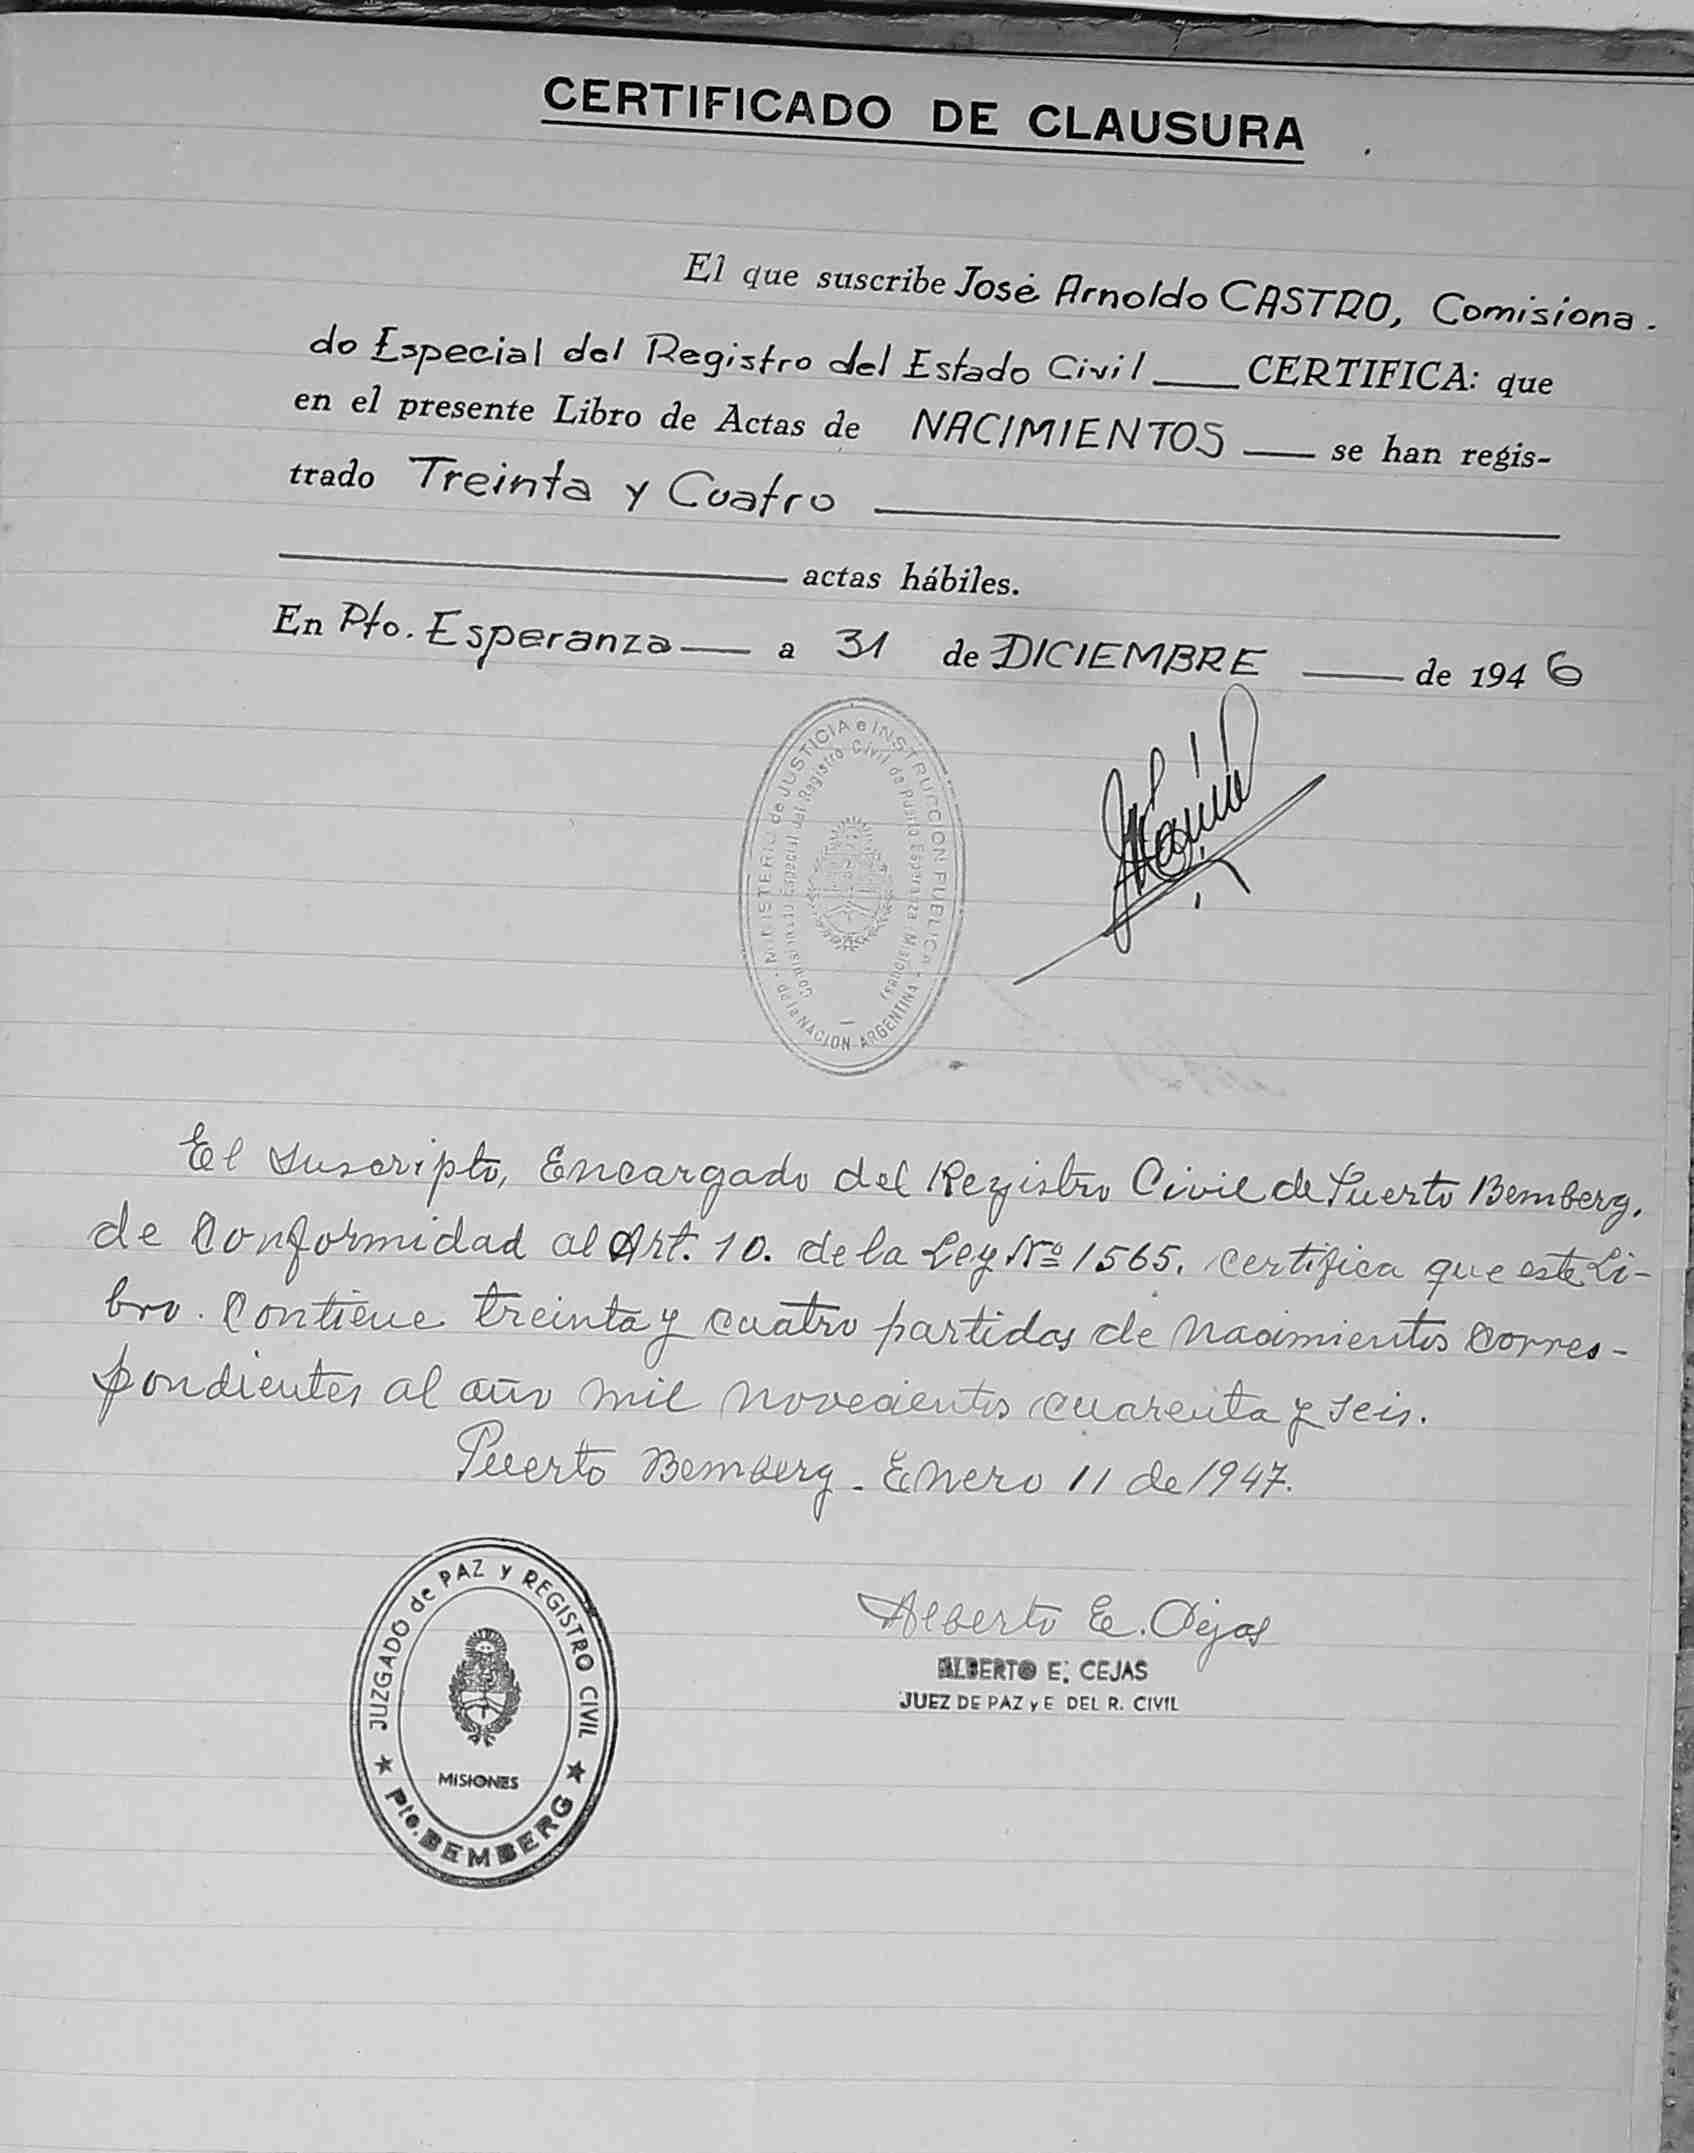 CERTIFICADO DE CLAUSURA
El que suscribe José Arnoldo CASTRO, Comisiona-
do Especial del Registro del Estado Civil ___ CERTIFICA: que
en el presente Libro de Actas de NACIMIENTOS ___ se han regis-
trado Treinta y Cuatro
actas hábiles.
En Pto. Esperanza — a 31 de DICIEMBRE — de 1946
MINISTERIO de JUSTICIA e INSTRUCCION PUBLICA
de la NACION ARGENTINA
Comisionado Especial del Registro Civil de Puerto Esperanza (Misiones)
El suscripto, Encargado del Registro Civil de Puerto Bemberg,
de Conformidad al Art. 10. de la Ley Nº 1565. certifica que este Li-
bro. Contiene treinta y cuatro partidas de nacimientos Corres-
pondientes al año mil novecientos cuarenta y seis.
Puerto Bemberg - Enero 11 de 1947.
JUZGADO de PAZ y REGISTRO CIVIL
MISIONES
★ Pto. BEMBERG ★
Alberto E. Cejas
ALBERTO E. CEJAS
JUEZ DE PAZ y E DEL R. CIVIL